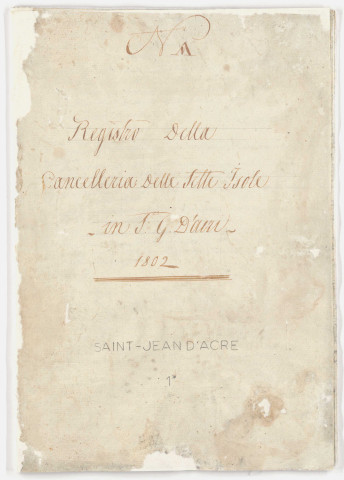 N 1
Registro Della
Cancelleria Delle Sette Isole
in S. G. D'acri
1802
SAINT-JEAN D'ACRE
1°